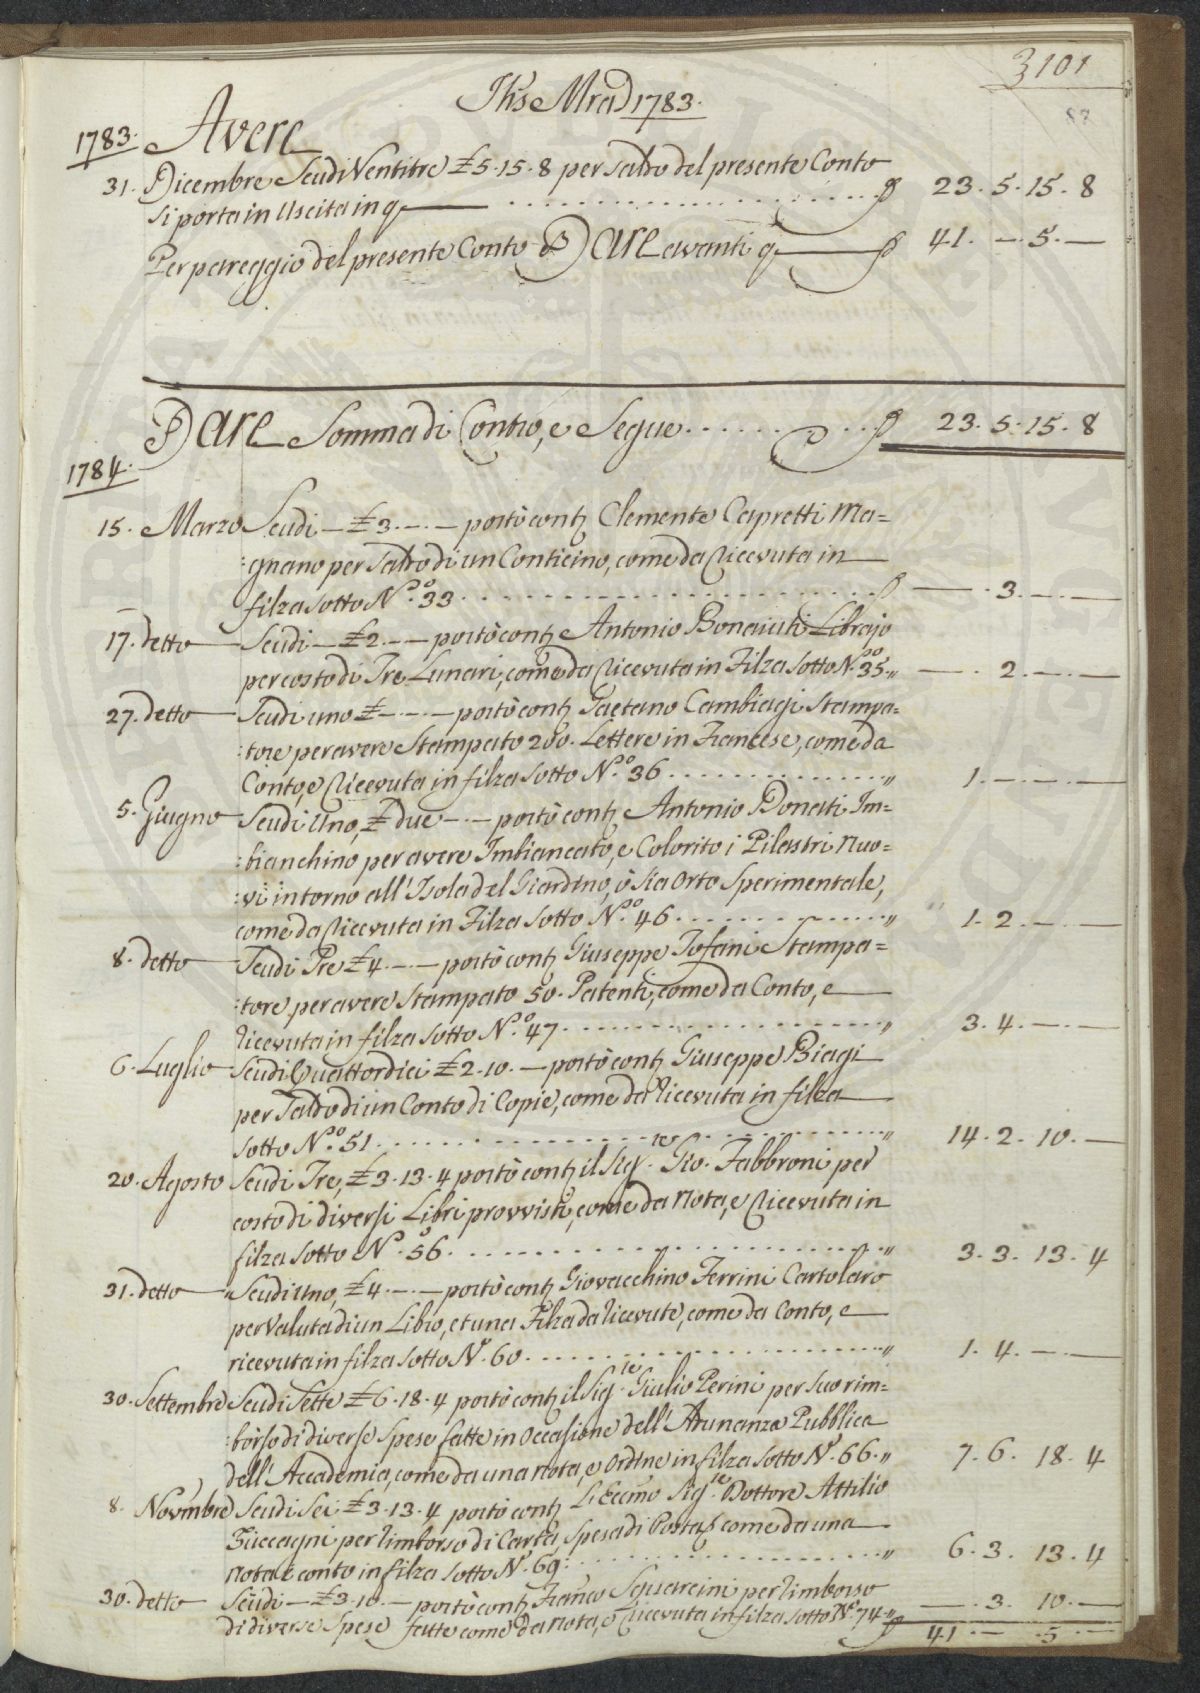 3101
87
Ihs Mrad 1783.
1783. Avere
31. Dicembre Scudi Ventitre £5.15.8 per Saldo del presente Conto
si porta in Uscita in q 23. 5. 15. 8
Per pareggio del presente Conto Dare avanti q 41. — 5. —
Dare Somma di Contro, e Segue 23. 5. 15. 8
1784.
15. Marzo Scudi — £3. — . — portò contj Clemente Capretti Ma=
:gnano per Saldo di un Conticino, come da Ricevuta in
filza Sotto N.o 33 — . 3. — . —
17. detto Scudi — £2. — . — portò contj Antonio Bonaiuti Librajo
per costo di Tre Lunari, come da Ricevuta in Filza Sotto N.o 35 „ — . 2. — . —
27. detto Scudi uno £ — . — . — portò contj Gaetano Cambiagi Stampa=
:tore per avere Stampato 200. Lettere in Francese, come da
Conto, e Ricevuta in filza Sotto N.o 36 „ 1. — . — . —
5. Giugno Scudi Uno, £ due — . — portò contj Antonio Donati Im=
:bianchino per avere Imbiancato, e Colorito i Pilastri Nuo=
:vi intorno all' Isola del Giardino, ò sia Orto Sperimentale,
come da Ricevuta in Filza Sotto N.o 46 „ 1. 2. — . —
8. detto Scudi Tre £4. — . — portò contj Giuseppe Tofani Stampa=
:tore per avere Stampato 50. Patenti, come da Conto, e
ricevuta in filza Sotto N.o 47 „ 3. 4. — . —
6. Luglio Scudi Quattordici £2.10. — portò contj Giuseppe Biagi
per Saldo di un Conto di Copie, come da ricevuta in filza
Sotto N.o 51 „ 14. 2. 10. —
20. Agosto Scudi Tre, £3.13.4 portò contj il Sig.re Gio. Fabbroni per
costo di diversi Libri provvisti, come da Nota, e Ricevuta in
filza Sotto N.o 56 „ 3. 3. 13. 4
31. detto Scudi Uno, £4. — . — portò contj Giovacchino Ferrini Cartolaro
per Valuta di un Libro, et una Filza da ricevute, come da Conto, e
ricevuta in filza Sotto N.o 60 „ 1. 4. — . —
30. Settembre Scudi Sette £6.18.4 portò contj il Sig.re Giulio Perini per Suo rim=
:borso di diverse Spese fatte in occasione dell' Adunanza Pubblica
dell' Accademia, come da una nota, e Ordine in filza Sotto N.o 66. „ 7. 6. 18. 4
8. Novembre Scudi Sei £3.13.4 portò contj L'Eccmo Sig.re Dottore Attilio
Zuccagni per rimborso di Carta, Spesa di Posta, come da una
nota e conto in filza Sotto N.o 69. „ 6. 3. 13. 4
30. detto Scudi — £3.10. — portò contj Franco Squarcini per rimborso
di diverse Spese fatte come da nota, e Ricevuta in filza Sotto N.o 74 „ — . 3. 10. —
41. — . 5. —